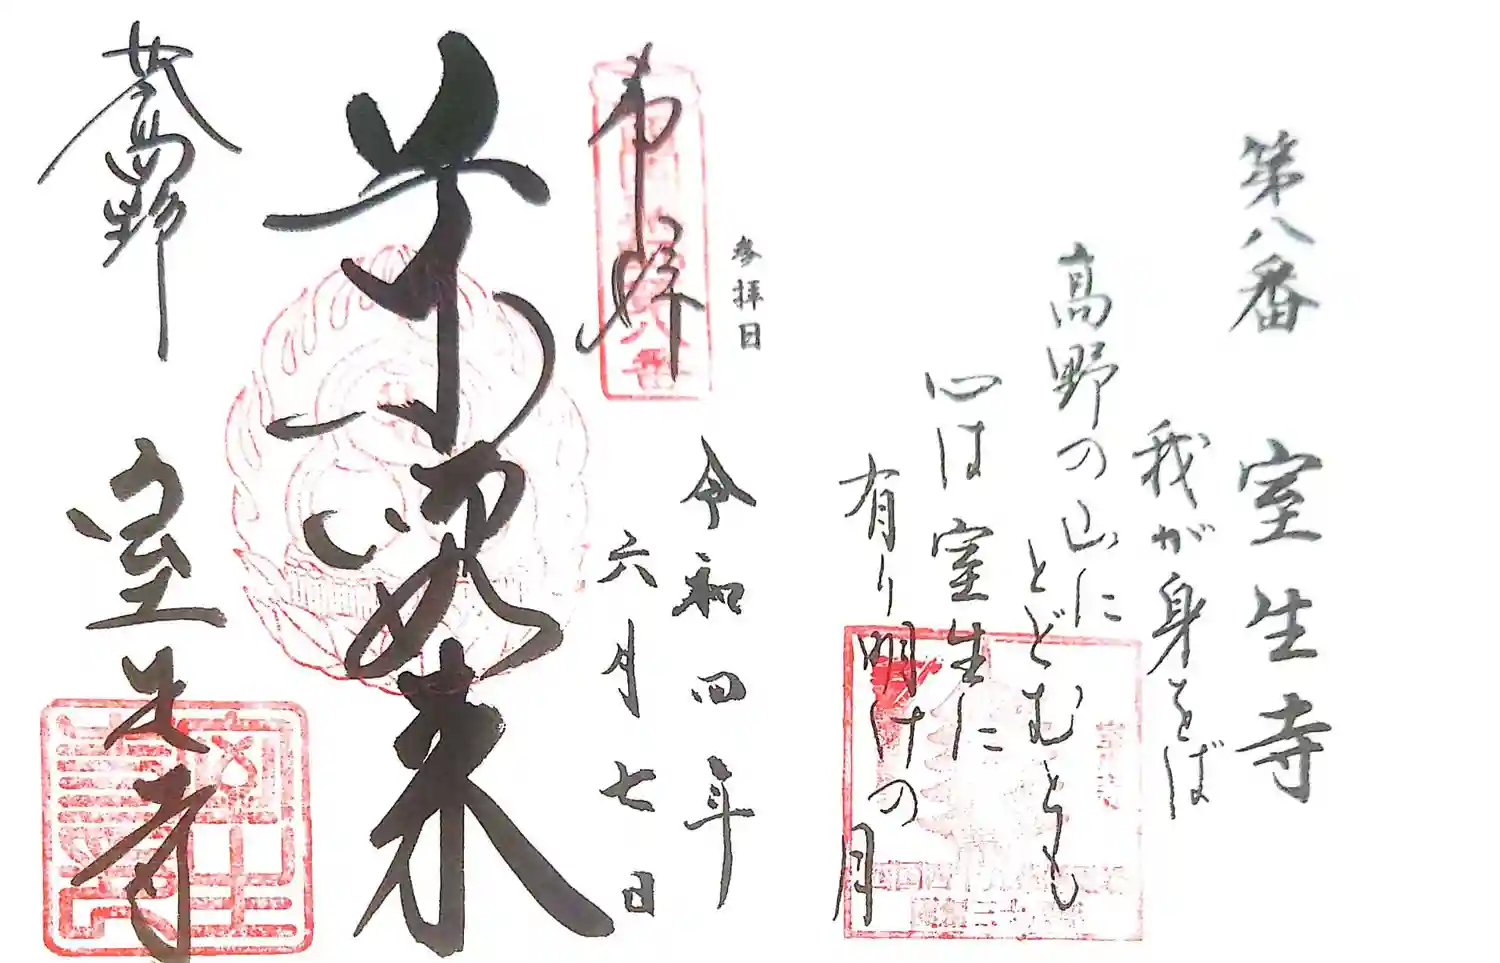 第八番 室生寺
我が身をば
高野の山に
とどむとも
心は室生に
有り明けの月
参拝日
奉拝
令和四年
六月七日
如来
女高野
室生寺